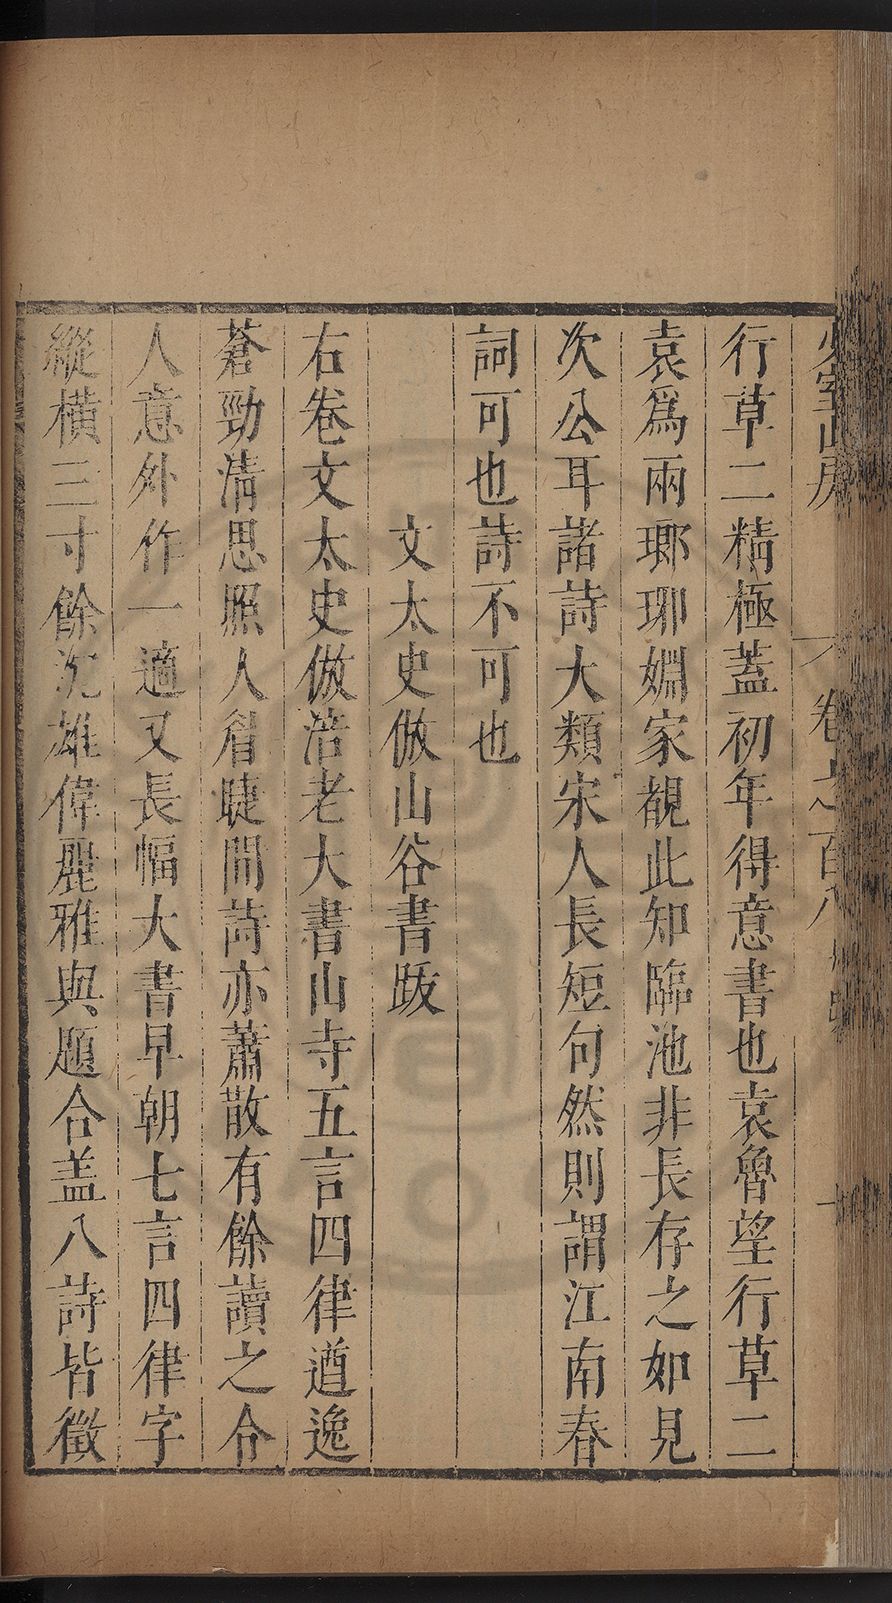 少室山房
卷之百八
行草二精極蓋初年得意書也袁魯望行草二
袁爲兩瑯琊婣家覩此知臨池非長存之如見
次公耳諸詩大類宋人長短句然則謂江南春
詞可也詩不可也
文太史倣山谷書跋
右卷文太史倣涪老大書山寺五言四律遒逸
蒼勁清思照人眉睫間詩亦蕭散有餘讀之令
人意外作一適又長幅大書早朝七言四律字
縱橫三寸餘沉雄偉麗雅與題合盖八詩皆徵